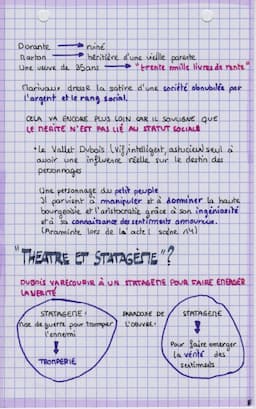 Dorante → ruiné
Marton → héritière d'une vieille parente
Une veuve de 35ans → "trente mille livres de rente"
Marivaux dresse la satire d'une société obnubilés par
l'argent et le rang social.
CELA VA ENCORE PLUS LOIN CAR IL SOULIGNE QUE
LE MÉRITE N'EST PAS LIÉ AU STATUT SOCIALE
• Le Vallet Dubois (Vif, intelligent, astucieux) seul à
avoir une influence réelle sur le destin des
personnages
Une personnage du petit peuple
Il parvient à manipuler et à dominer la haute
bourgeoisie et l'aristocratie grâce à son ingéniosité
et à sa connaissance des sentiments amoureux.
(Araminte lors de la acte I scène 14)
"THÉÂTRE ET STATAGÈME"?
DUBOIS VA RECOURIR À UN STATAGÈME POUR FAIRE EMERGER
LA VERITÉ
STATAGEME :
ruse de guerre pour tromper
l'ennemi
TROMPERIE
PARADOXE DE
L'OEUVRE!
STATAGEME
Pour faire emerger
la vérité des
sentiments